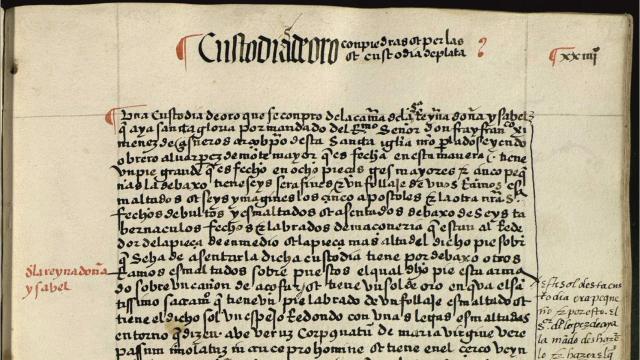 Custodia de oro con piedras et perlas
et custodia de plata
xxiiij
Una Custodia de oro que se conpro de la cama de la Reyna doña ysabel
q̃ aya santa gloria por mandado del R.mo Señor don fray fran.co xi
menez de çisneros arçobpõ desta Santa iglia nrõ plado seyendo
obrero aluar perez de mõte mayor que es fecha en esta manera tiene
vn pie grande q̃ es fecho en ocho pieças
las debaxo tiene seys serafines et vn follaje de vnos Ramos es
maltados et seys ymagines los çinco apostoles et la otra nrã S.ª
fechos de bultos y esmaltados et asentados debaxo de seys ta
bernaculos fechos et labrados de maçoneria q̃ estan al Rede
dor de la pieça de en medio et la pieça mas alta del dicho pie sobre
que Se ha de asentar la dicha custodia tiene por debaxo otros
Ramos esmaltados sobre puestos el qual dho pie esta arma
do sobre vn cañon de açofar et tiene vn sol de oro en que esta el san
tissimo sacram.º q̃ tiene vn pie labrado de vn follaje esmaltado et
tiene el dicho sol vn espejo Redondo con vnas letras esmaltadas
en torno que dizen ave veruz Corpus natũ de maria virgine vere
pasum imolatuz in cruce pro homine et tiene en el cerco veyn
dla reyna doña
ysabel
este sol desta cus
todia era peque
ño et por esto el
S.r
la mãdo deshazer
et hazer el q̃